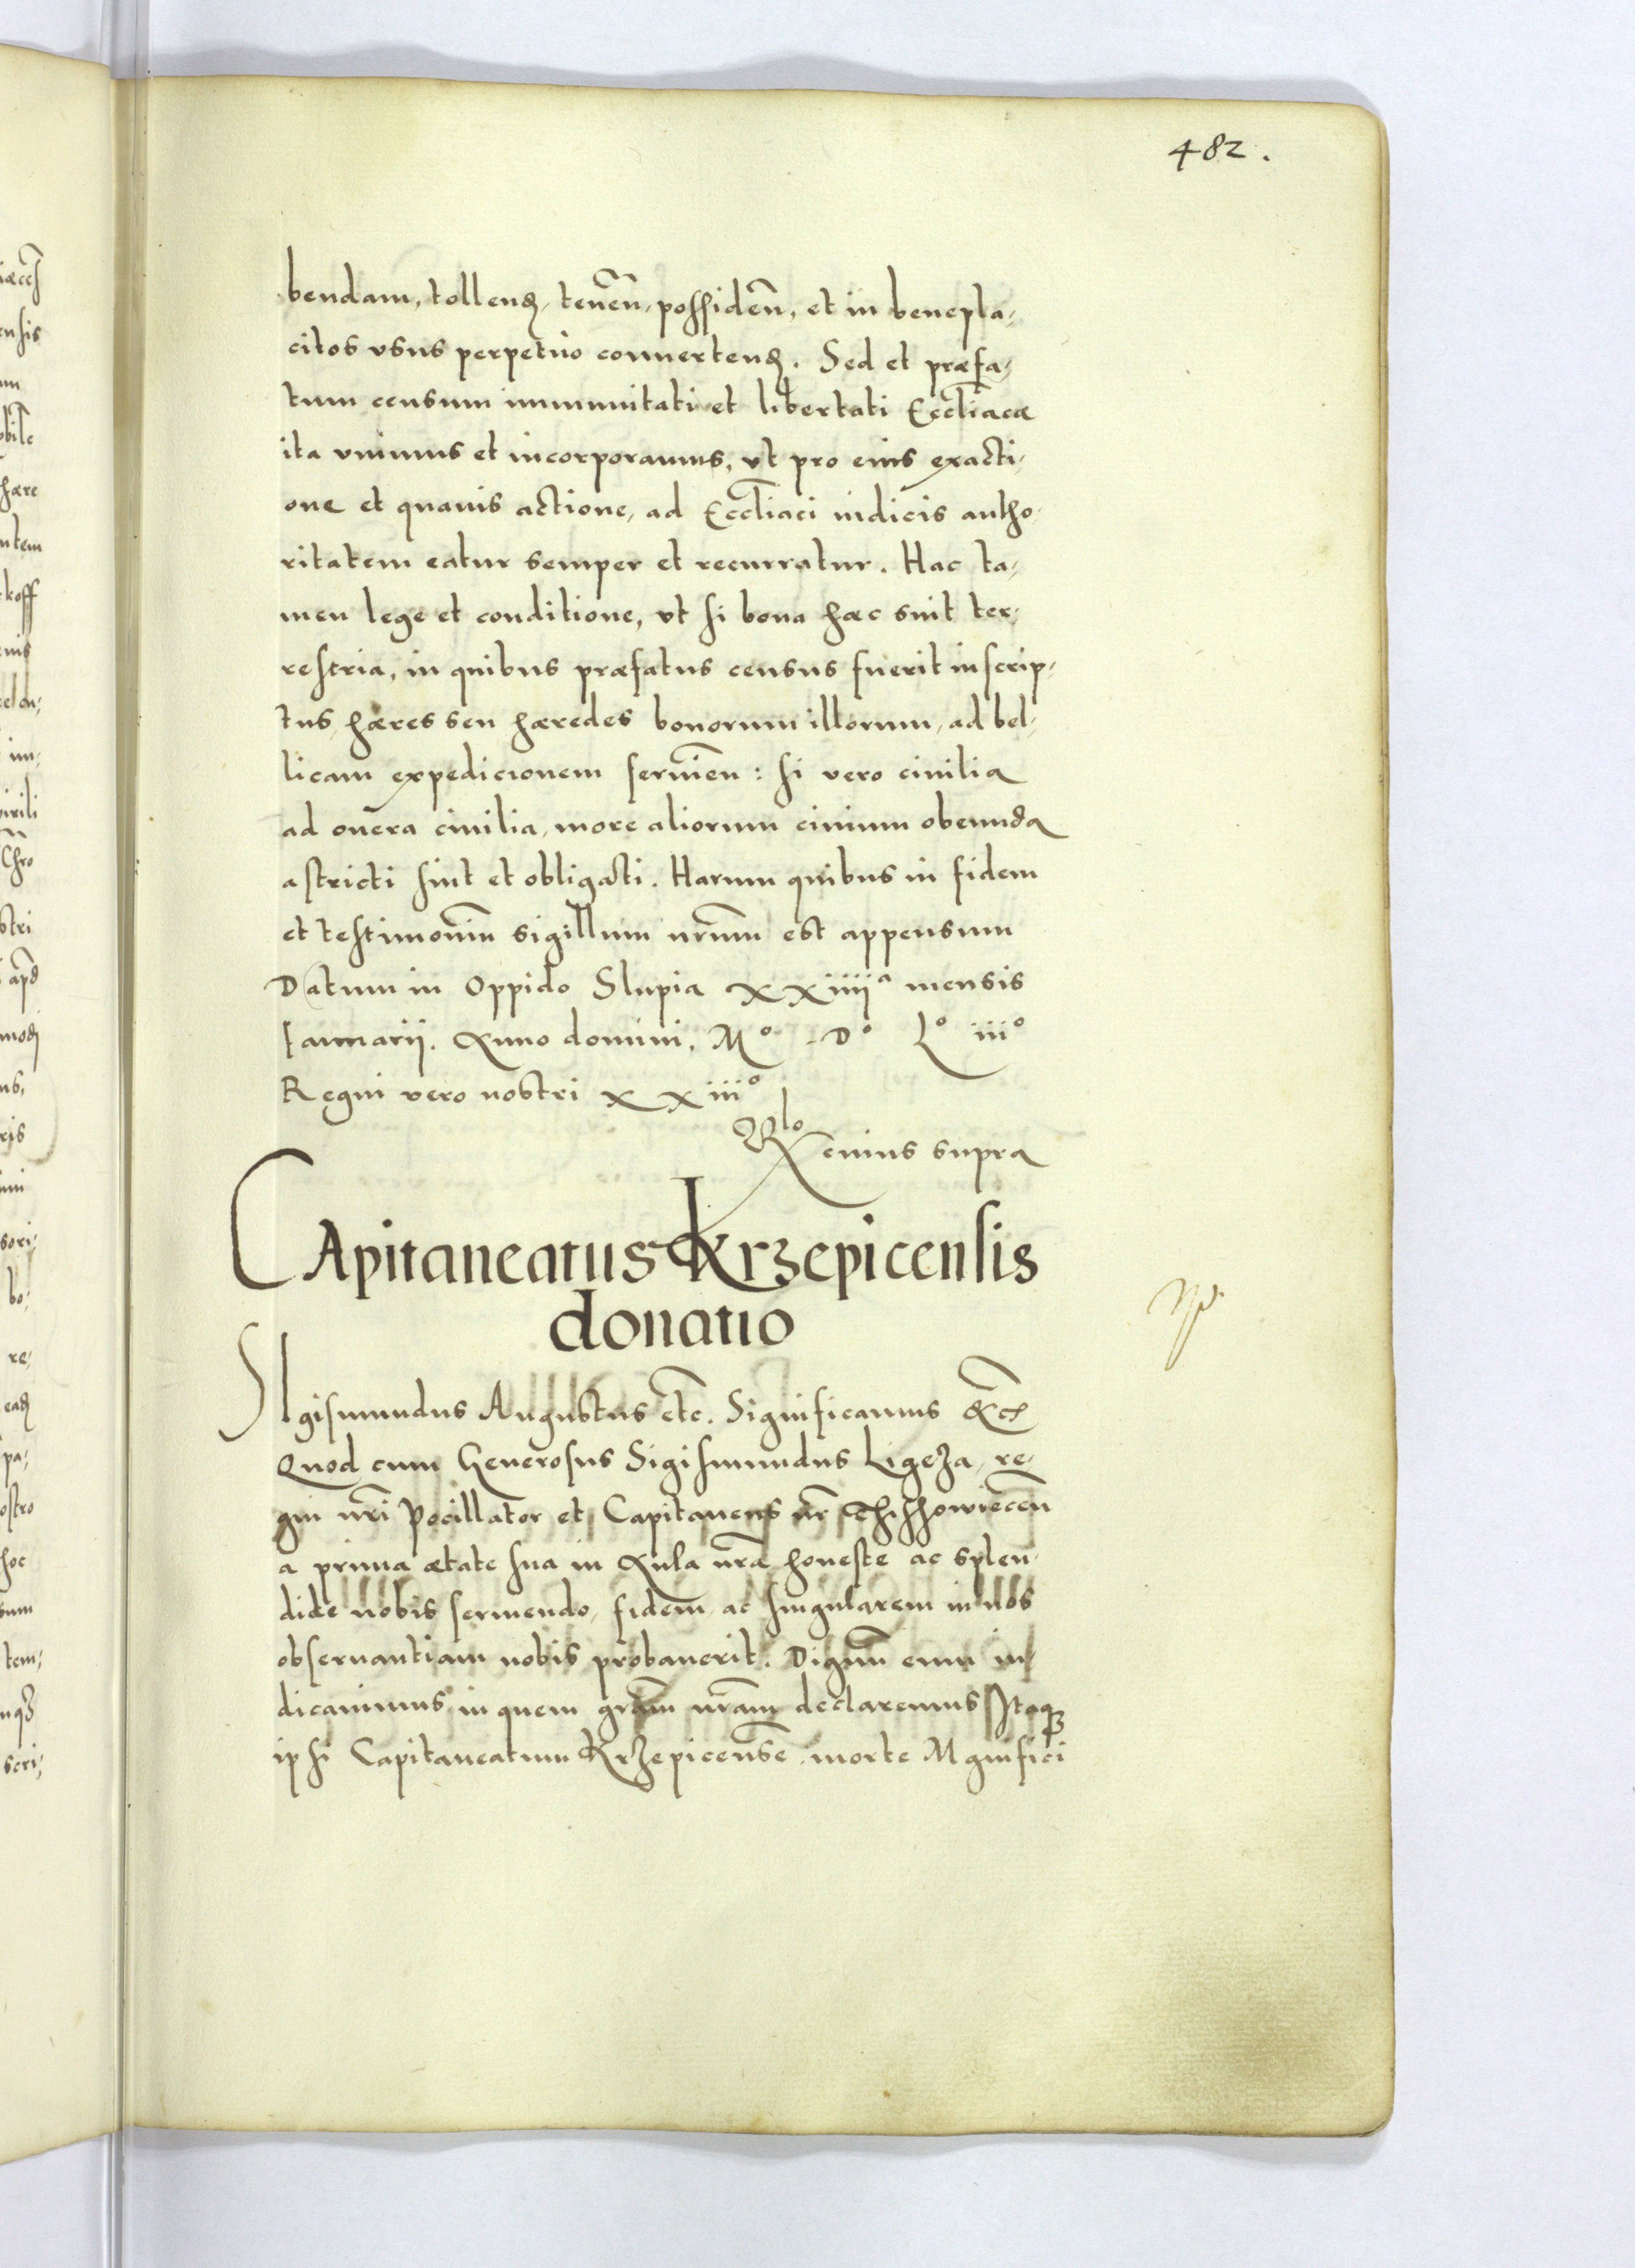 482.
bendam, tollend, tenen̄, possiden̄, et in benepla-
citos vsus perpetuo conuertend. Sed et præfa-
tum censum immunitati et libertati Eccl̄iacæ
ita vnimus et incorporamus, vt pro eius exacti-
one et quauis actione, ad Eccl̄iaci iudicis autho-
ritatem eatur semper et recurratur. Hac ta-
men lege et conditione, vt si bona hæc sint ter-
restria, in quibus præfatus census fuerit inscrip-
tus hæres seu hæredes bonorum illorum, ad bel-
licam expedicionem seruien̄: si vero ciuilia
ad onera ciuilia, more aliorum ciuium obeunda
astricti sint et obligati. Harum quibus in fidem
et testimoniū sigillum nr̄um est appensum
Datum in Oppido Slupia xxiiiiª mensis
Ianuarij. Anno domini, Mº Dº Lº iiiº
Regni vero nostri xxiiiº
Rlo cuius supra
CApitaneatus Krzepicensis
donatio
SIgismundus Augustus etc̄. Significamus &c̄
Quod cum Generosus Sigismundus Ligeza, re-
gni nr̄i Pocillator et Capitaneus nr̄ Chishowiecen̄
a prima ætate sua in Aula nr̄a honeste ac splen-
dide nobis seruiendo, fidem ac singularem in nos
obseruantiam nobis probauerit. Dignū eum iu-
dicauimus in quem gr̄am nr̄am declaremus Itaq3
ipsi Capitaneatum Krzepicense morte Mgnifici